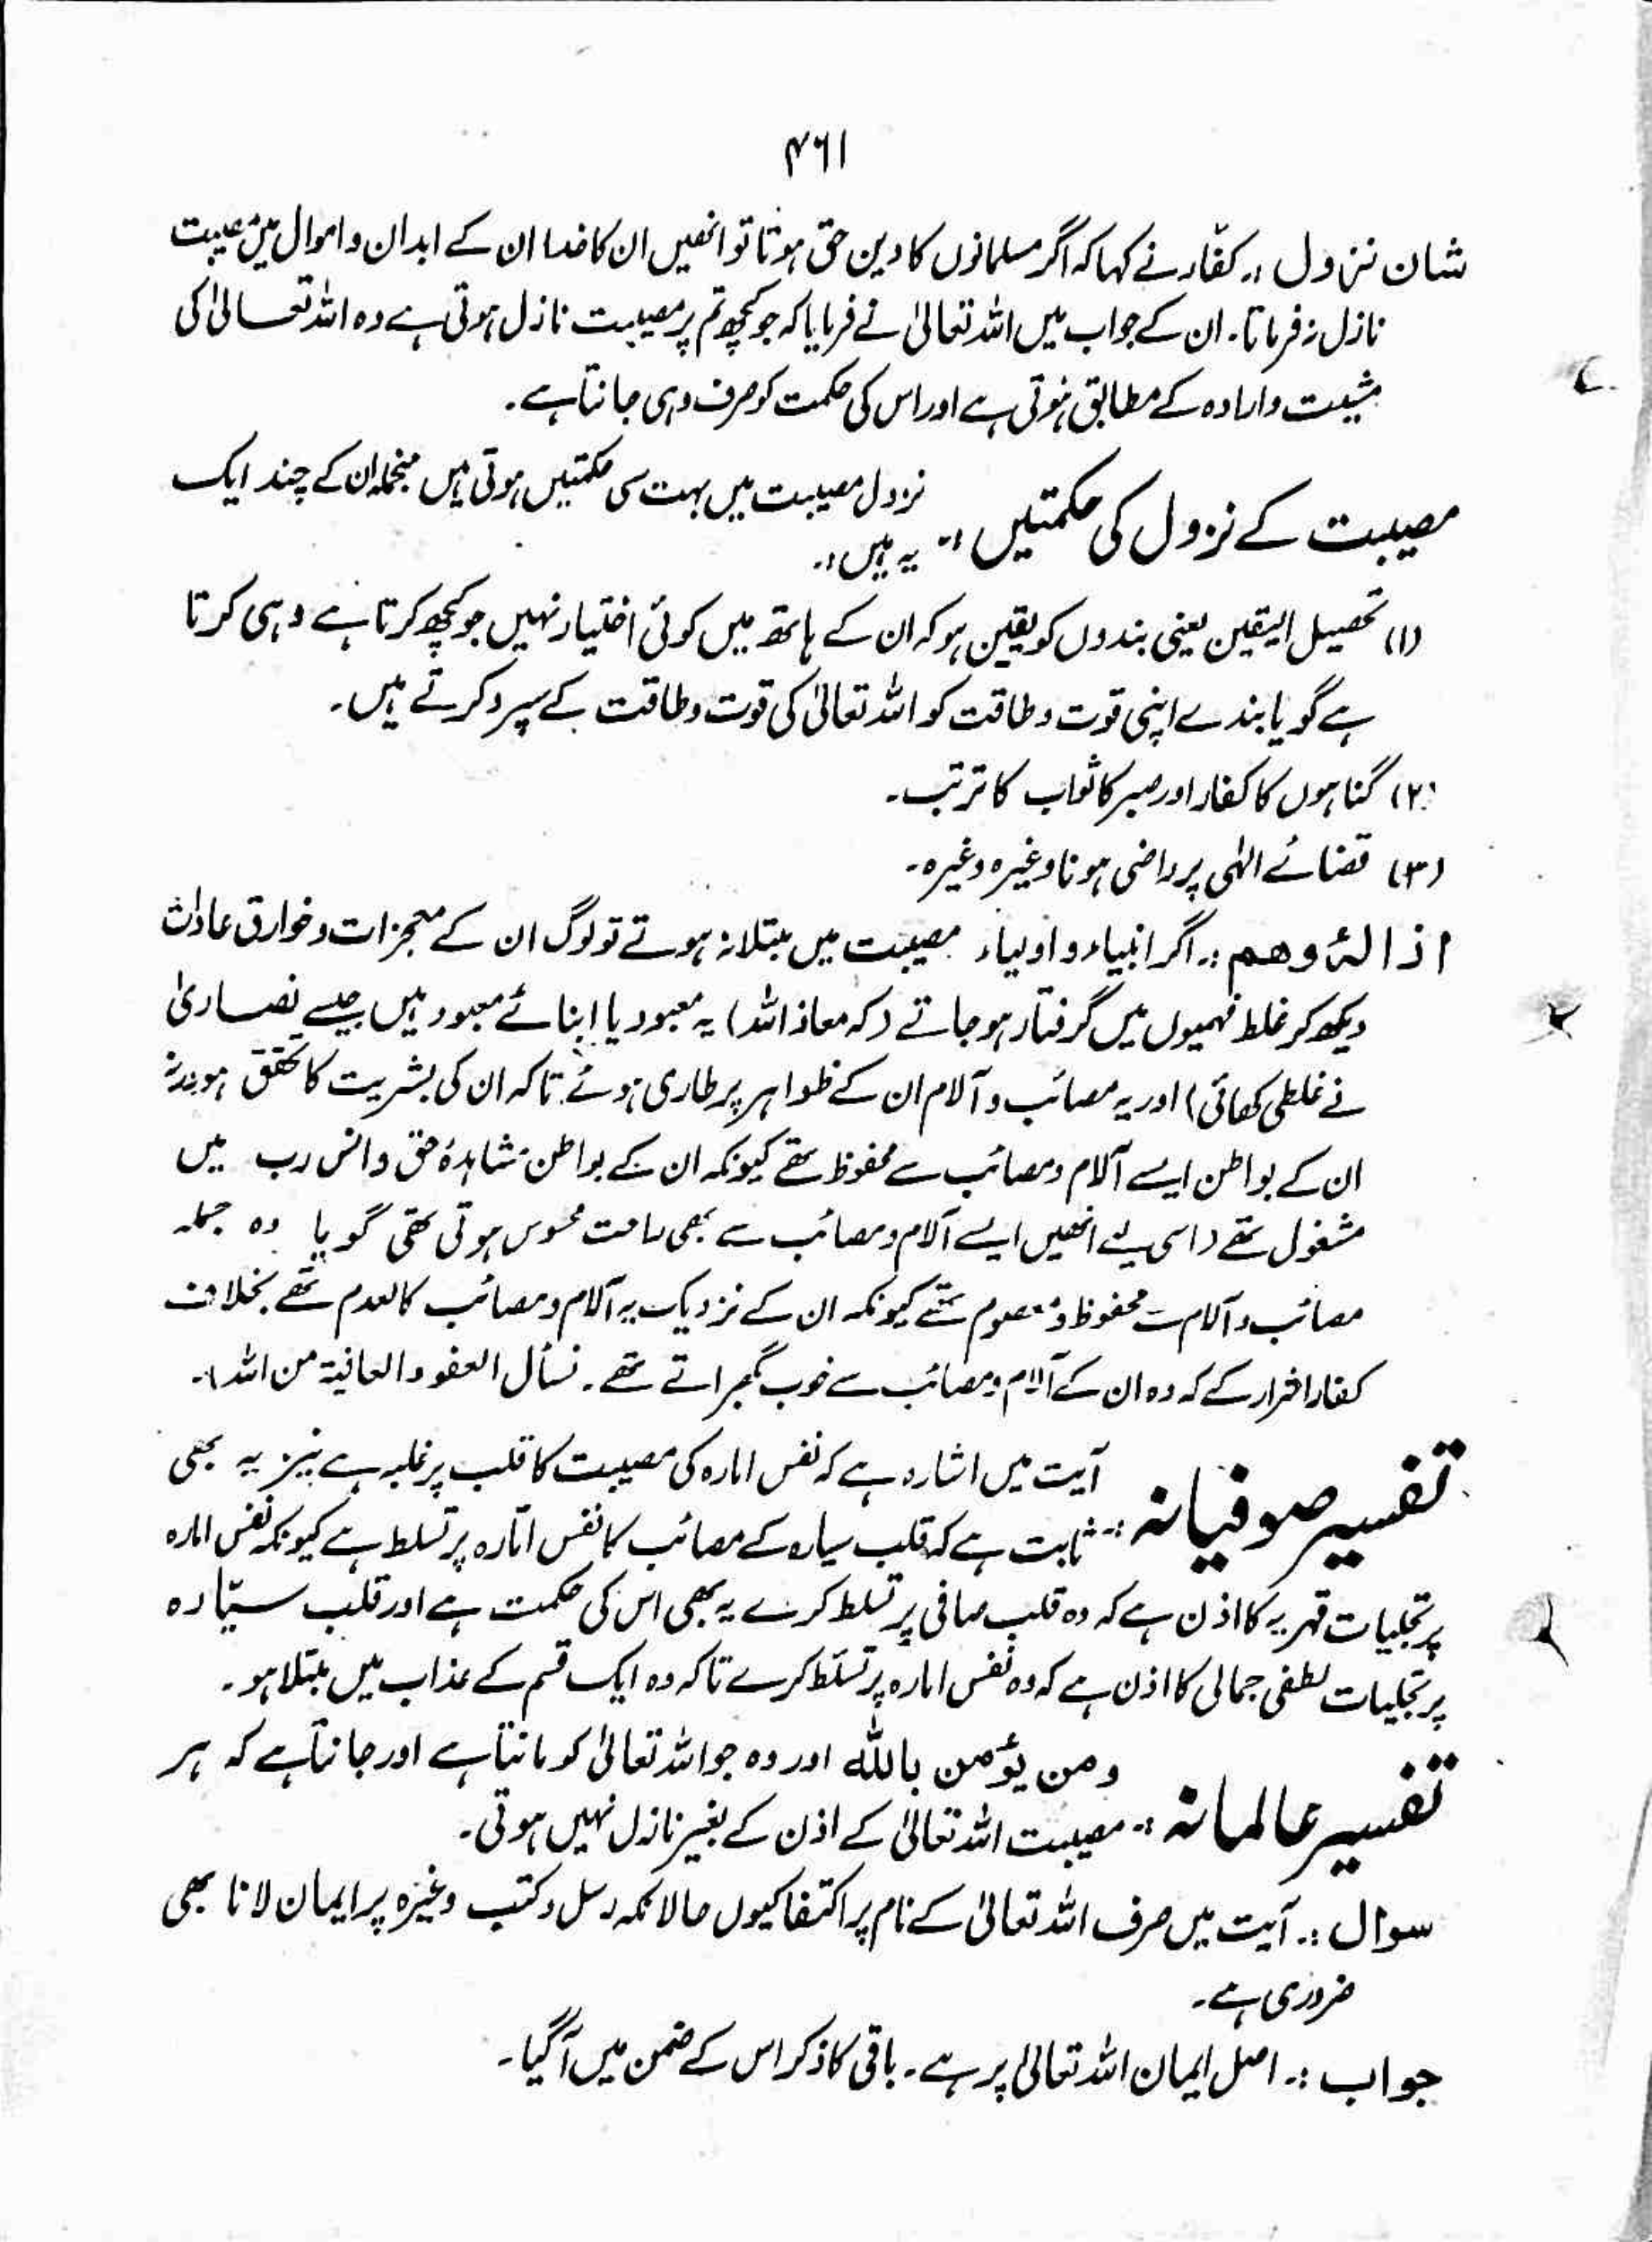 ۴۶۱
شان نزول :۔ کفّار نے کہا کہ اگر مسلمانوں کا دین حق ہوتا تو انھیں ان کا خدا ان کے ابدان و اموال میں مصیبت
نازل نہ فرماتا۔ ان کے جواب میں اللہ تعالیٰ نے فرمایا کہ جو کچھ تم پر مصیبت نازل ہوتی ہے وہ اللہ تعالیٰ کی
مشیت و ارادہ کے مطابق ہوتی ہے اور اس کی حکمت کو صرف وہی جانتا ہے۔
مصیبت کے نزول کی حکمتیں :۔ نزول مصیبت میں بہت سی حکمتیں ہوتی ہیں منجملہ ان کے چند ایک
یہ ہیں :۔
(۱) تحصیل الیقین یعنی بندوں کو یقین ہو کہ ان کے ہاتھ میں کوئی اختیار نہیں جو کچھ کرتا ہے وہی کرتا
ہے گویا بندے اپنی قوت و طاقت کو اللہ تعالیٰ کی قوت و طاقت کے سپرد کرتے ہیں۔
(۲) گناہوں کا کفار اور صبر کا ثواب کا ترتب۔
(۳) قضائے الٰہی پر راضی ہونا وغیرہ وغیرہ۔
ازالۂ وھم :۔ اگر انبیاء و اولیاء مصیبت میں مبتلا نہ ہوتے تو لوگ ان کے معجزات و خوارق عادات
دیکھ کر غلط فہمیوں میں گرفتار ہو جاتے (کہ معاذ اللہ) یہ معبود یا ابنائے معبود ہیں جیسے نصاریٰ
نے غلطی کھائی) اور یہ مصائب و آلام ان کے ظواہر پر طاری ہوئے تاکہ ان کی بشریت کا تحقق ہو ورنہ
ان کے بواطن ایسے آلام و مصائب سے محفوظ تھے کیونکہ ان کے بواطن مشاہدۂ حق و انس رب میں
مشغول تھے (اسی لیے انھیں ایسے آلام و مصائب سے بھی راحت محسوس ہوتی تھی گویا وہ جملہ
مصائب و آلام سے محفوظ و معصوم تھے کیونکہ ان کے نزدیک یہ آلام و مصائب کالعدم تھے بخلاف
کفار اشرار کے کہ وہ ان کے آلام و مصائب سے خوب گھبراتے تھے۔ نسأل العفو و العافیۃ من اللہ)۔
تفسیر صوفیانہ :۔ آیت میں اشارہ ہے کہ نفس امارہ کی مصیبت کا قلب پر غلبہ ہے نیز یہ بھی
ثابت ہے کہ قلب سیارہ کے مصائب کا نفس امّارہ پر تسلط ہے کیونکہ نفس امارہ
پر تجلیات قہریہ کا اذن ہے کہ وہ قلب صافی پر تسلط کرے یہ بھی اس کی حکمت ہے اور قلب سیّارہ
پر تجلیات لطفی جمالی کا اذن ہے کہ وہ نفس امارہ پر تسلّط کرے تاکہ وہ ایک قسم کے عذاب میں مبتلا ہو۔
تفسیر عالمانہ :۔ ومن یؤمن باللہ اور وہ جو اللہ تعالیٰ کو مانتا ہے اور جانتا ہے کہ ہر
مصیبت اللہ تعالیٰ کے اذن کے بغیر نازل نہیں ہوتی۔
سوال :۔ آیت میں صرف اللہ تعالیٰ کے نام پر اکتفا کیوں حالانکہ رسل و کتب وغیرہ پر ایمان لانا بھی
ضروری ہے۔
جواب :۔ اصل ایمان اللہ تعالیٰ پر ہے۔ باقی کا ذکر اس کے ضمن میں آ گیا۔